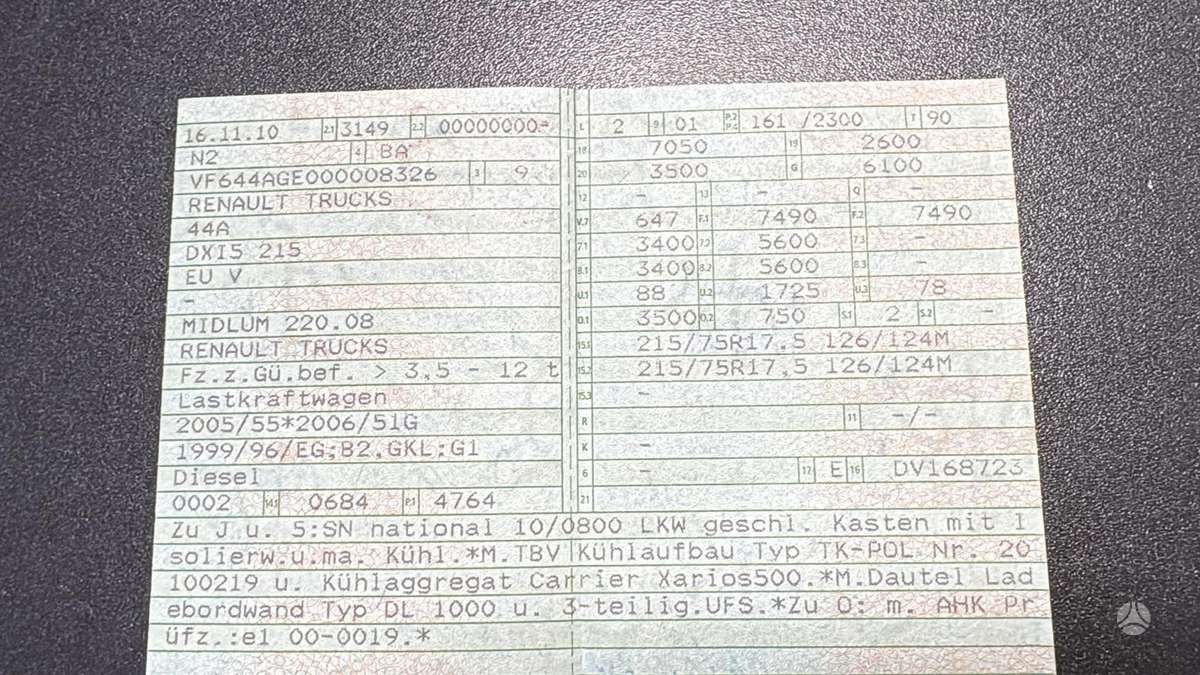 16.11.10 2.1 3149 2.2 00000000-
N2 4 BA
VF644AGE000008326 3 9
RENAULT TRUCKS
44A
DXI5 215
EU V
-
MIDLUM 220.08
RENAULT TRUCKS
Fz.z.Gü.bef. > 3,5 - 12 t
Lastkraftwagen
2005/55*2006/51G
1999/96/EG;B2,GKL:G1
Diesel
0002 14.1 0684 P.1 4764
L 2 9 01 P.2 P.4 161 /2300 T 90
18 7050 19 2600
20 3500 G 6100
12 - 13 - Q -
V.7 647 F.1 7490 F.2 7490
7.1 3400 7.2 5600 7.3 -
8.1 3400 8.2 5600 8.3 -
U.1 88 U.2 1725 U.3 78
O.1 3500 O.2 750 S.1 2 S.2 -
15.1 215/75R17.5 126/124M
15.2 215/75R17,5 126/124M
15.3 -
R 11 -/-
K -
6 - 17 E 16 DV168723
21
Zu J u. 5:SN national 10/0800 LKW geschl. Kasten mit I
solierw.u.ma. Kühl.*M.TBV Kühlaufbau Typ TK-POL Nr. 20
100219 u. Kühlaggregat Carrier Xarios500.*M.Dautel Lad
ebordwand Typ DL 1000 u. 3-teilig.UFS.*Zu O: m. AHK Pr
üfz.:e1 00-0019.*